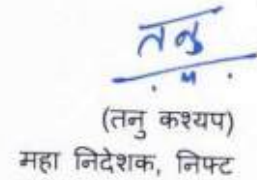 तनु
(तनु कश्यप)
महा निदेशक, निफ्ट